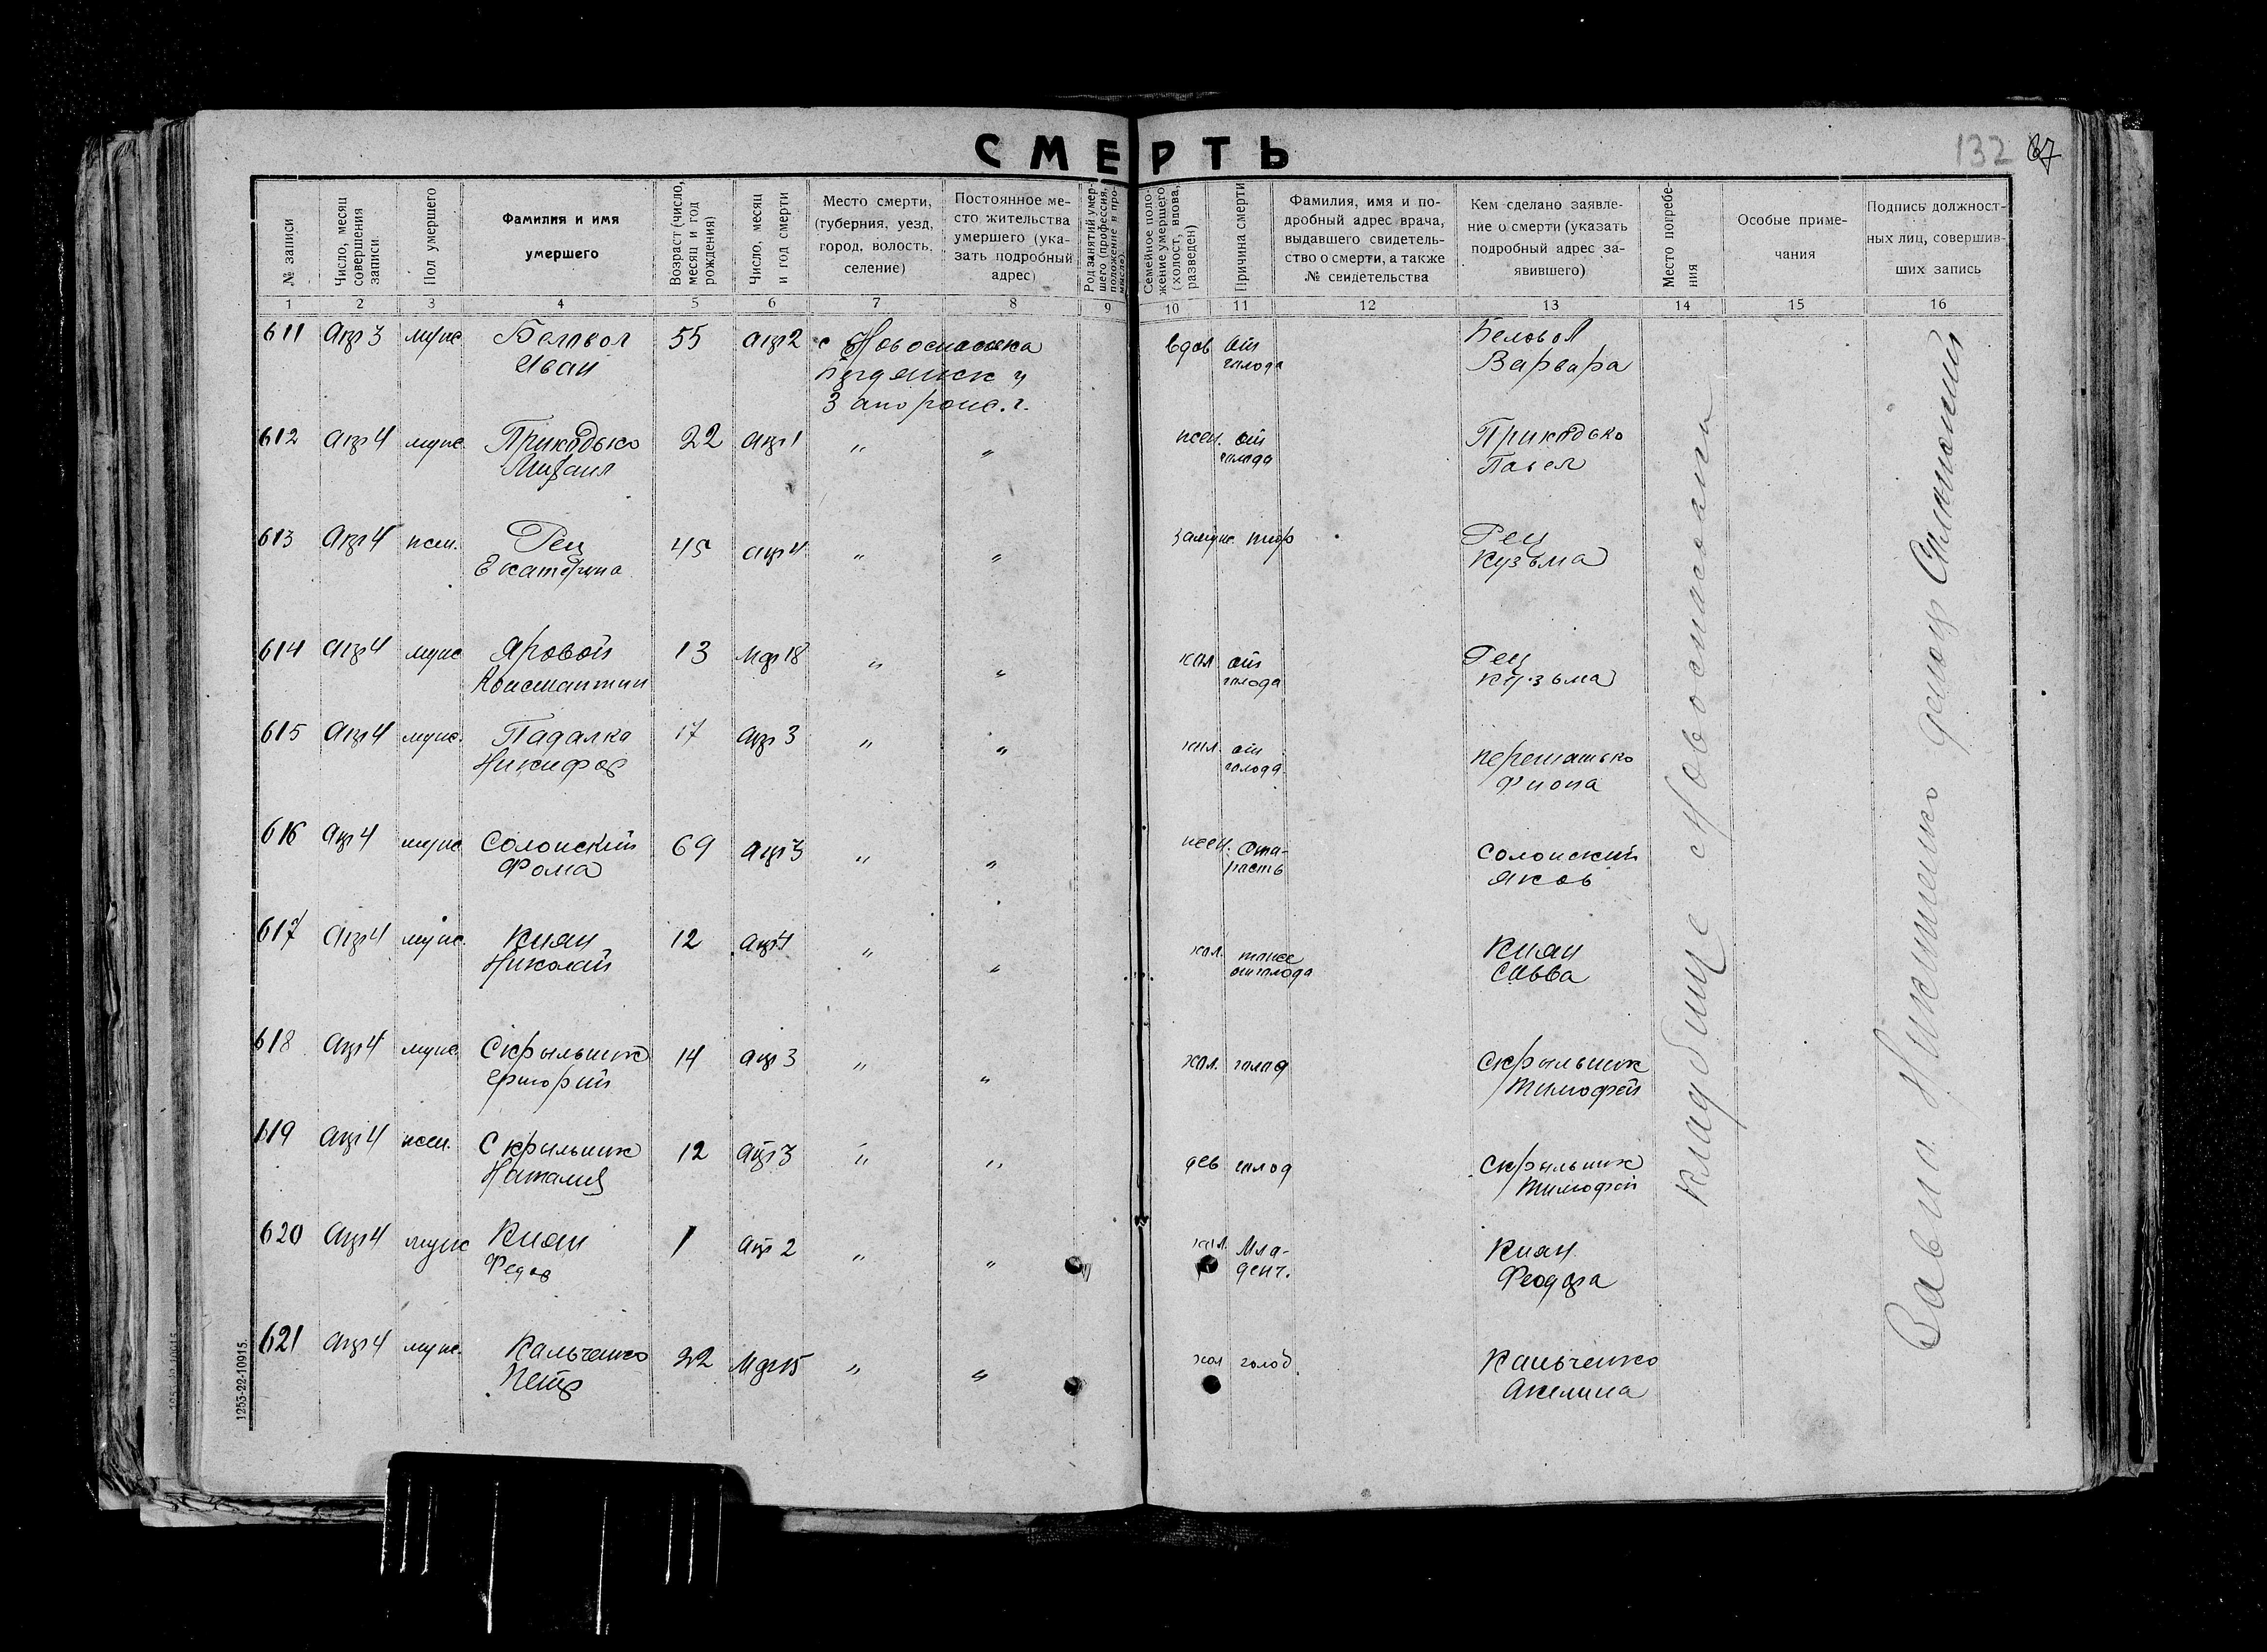 СМЕРТЬ
132 67
№ записи
Число, месяц совершения записи.
Пол умершего
Фамилия и имя
умершего
Возраст (число, месяц и год рождения)
Число, месяц и год смерти
Место смерти,
(губерния, уезд,
город, волость,
селение)
Постоянное ме-
сто жительства
умершего (ука-
зать подробный
адрес)
Род занятий умер-
шего (профессия,
положение в про-
мысле).
Семейное поло-
жение умершего
(холост, вдова,
разведен)
Причина смерти
Фамилия, имя и по-
дробный адрес врача,
выдавшего свидетель-
ство о смерти, а также
№ свидетельства
Кем сделано заявле-
ние о смерти (указать
подробный адрес за-
явившего)
Место погребе-
ния
Особые приме-
чания
Подпись должност-
ных лиц, совершив-
ших запись
1 2 3 4 5 6 7 8 9 10 11 12 13 14 15 16
611 Апр 3 муж Беловол 55 апр 2 с Новоспасовка вдов от Беловол
Иван Бердянск у голода Варвара
Запорож. г.
612 Апр 4 муж. Приходько 22 апр 1 " " жен. от Приходько
Михаил голода Павел
613 Апр 4 жен. Рец 45 апр 4 " " замуж. тиф Рец
Екатерина Кузьма
614 Апр 4 муж Яровой 13 Мар 18 " " хол. от Рец
Константин голода Кузьма
615 Апр 4 муж. Падалка 17 апр 3 " " хол. от
Никифор голода
616 Апр 4 муж Солонский 69 апр 3 " " жен. Ста- Солонский
Фома рость Яков
617 Апр 4 муж. Киян 12 апр 4 " " хол. тоже Киян
Николай от голода Савва
618 Апр 4 муж. Скрыльник 14 апр 3 " " хол. голод Скрыльник
Григорий Тимофей
619 Апр 4 жен. Скрыльник 12 апр 3 " " дев голод Скрыльник
Наталия Тимофей
620 Апр 4 муж Киян 1 апр 2 " " хол. Мла- Киян
Федор денч. Феодора
621 Апр 4 муж. Кальченко 22 Мар 15 " " хол голод Кальченко
Петр Акилина
кладбище с Новоспасовка
1253-22-10915.